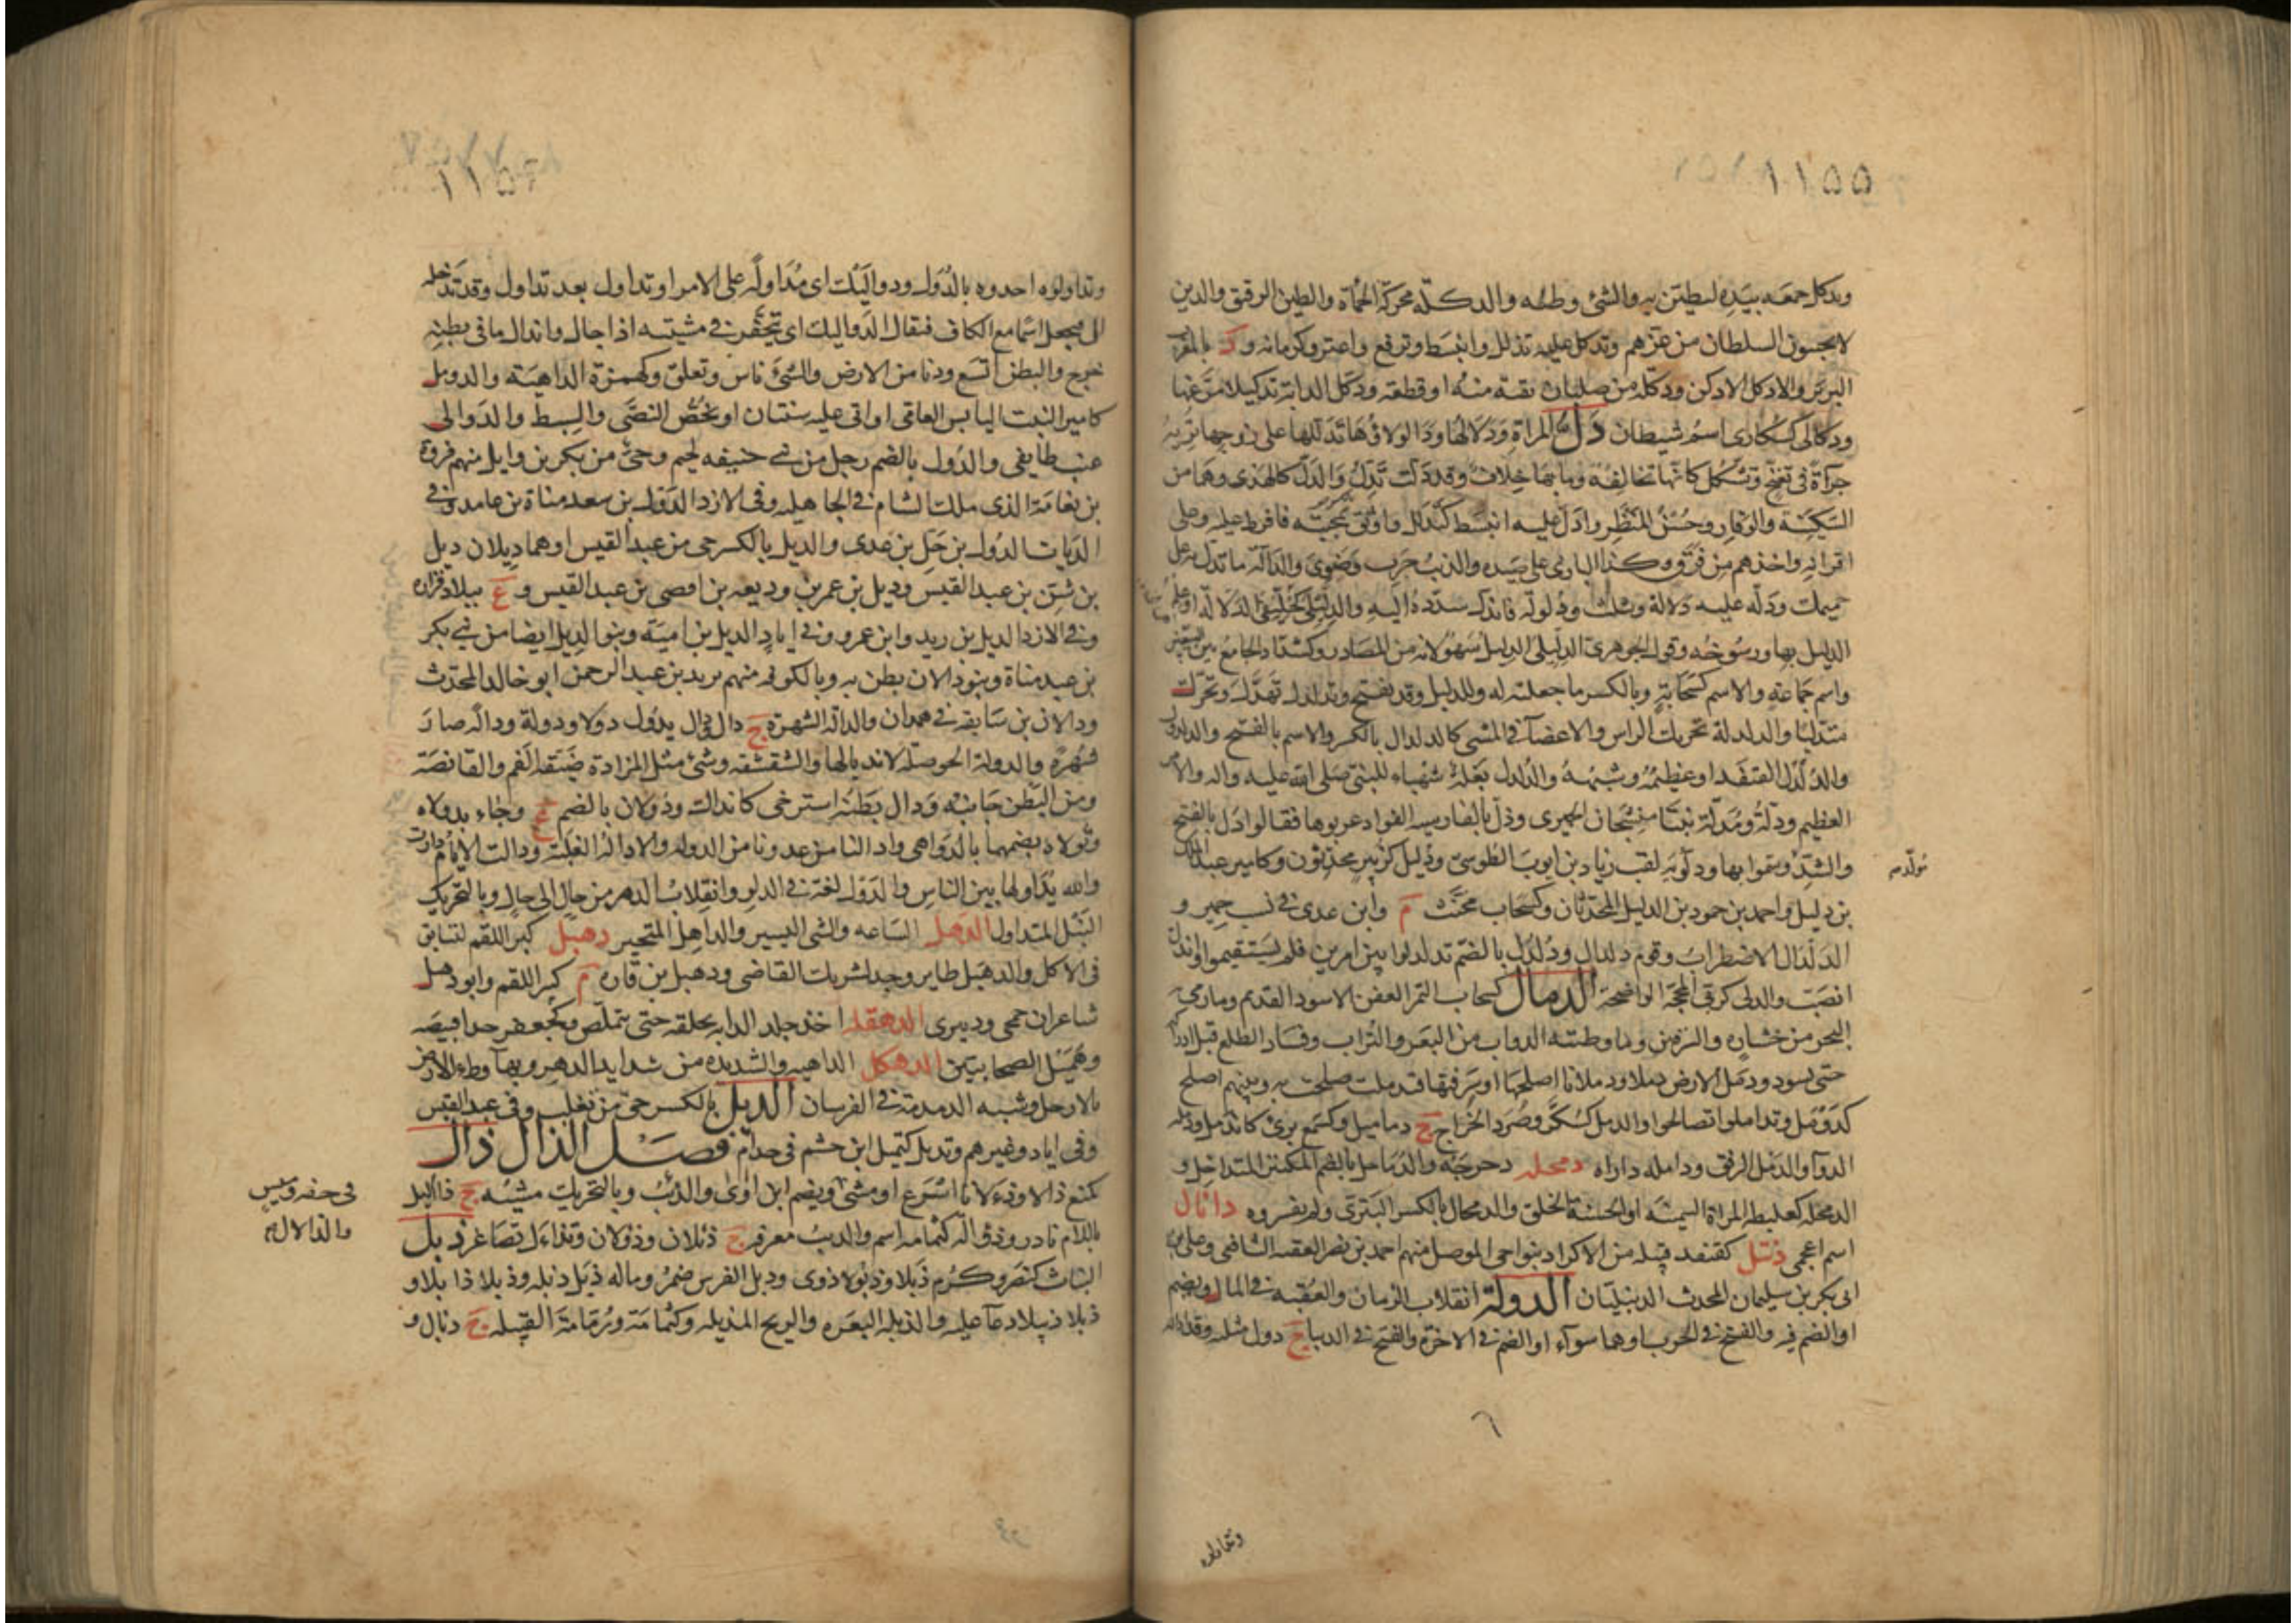 ١١٥٥
ودكل جمعه بيده ليطين به والشئ وطئه والدكلة محركة الحمأة والطين الرقيق والذين
لا يجيبون السلطان من عزهم وتدكل عليه تذلل وانبسط وترفع واعتز وكرمانه و
البربر والادكل الادكن ودكلة من صليان بقية منه او قطعة ودكل الدابة تدكيلا مرغها
ودكالى كسكارى اسم شيطان دل المراة ودلالها ودالولاؤها تدللها على زوجها تريه
جراة في تغنج وتشكل كانها تخالفه وما بها خلاف وقد دلت تدل والدل كالهدى وهما من
السكينة والوقار وحسن المنظر وادل عليه انبسط كتدلل واوثق بمحبته فافرط عليه وعلى
اقرانه واخذهم من فوق وكذا البازي على صيده والذئب جرب وضوى والدالة ما تدل به على
حميمك ودله عليه دلالة ويثلث ودلولة فاندل سدده اليه والدليلى كخليفى الدلالة او علم
الدليل بها ورسوخه وقول الجوهرى الدليلى الدليل سهو لانه من المصادر وكشداد الجامع بين البيعين
واسم جماعة والاسم كسحابة وبالكسر ما جعلته له وللدليل وقد يفتح وتدلدل تهدل وتحرك
متدليا والدلدلة تحريك الراس والاعضآ في المشي كالدلدال بالكسر والاسم بالفتح والدلدول
والدلدل القنفذ او عظيمه وشبهه والدلدل بغلة شهباء للنبي صلى الله عليه واله والامر
العظيم ودلة ومدلة بنتا منشجان الحميرى ودل بالفارسية الفواد عربوها فقالوا دل بالفتح
والشد وسموا بها ودلويه لقب زياد بن ايوب الطوسى ودليل كزبير محدثون وكامير عبد الملك
مولده
بن دليل واحمد بن حمود بن الدليل المحدثان وكسحاب مخنث م وابن عدى في نسب حمير و
الدلدال الاضطراب وقوم دلدال ودلدل بالضم تدلدلوا بين امرين فلم يستقيموا واندل
انصب والدلى كربى المحجة الواضحة الدمال كسحاب التمر العفن الاسود القديم وما رمى به
البحر من خشارة والسرقين وما وطئته الدواب من البعر والتراب وفساد الطلع قبل ادراكه
حتى يسود ودمل الارض دملا ودملانا اصلحها او سرقنها فتدملت صلحت به وبينهم اصلح
كدومل وتداملوا تصالحوا والدمل كسكر وصرد الخراج ج دماميل وكسمع برئ كاندمل ودمله
الدوآ والدمل الرفق ودامله داراه دمحله دحرجه والدماحل بالضم المكتنز المتداخل و
الدمحلة كعلبطة المراة السمينة او الحسنة الخلق والدمحال بالكسر البترى ولم يفسروه دانال
اسم اعجمى دنبل كقنفد قبيلة من الاكراد بنواحى الموصل منهم احمد بن نصر الفقيه الشافعى وعلى بن
ابى بكر بن سليمان المحدث الدنبليان الدولة انقلاب الزمان والعقبة في المال ويضم
او الضم فيه والفتح في الحرب او هما سوآء او الضم في الاخرة والفتح في الدنيا ج دول مثلثة وقد اداله
٦
وتداولوه
١١٥٦
وتداولوه اخدوه بالدول ودواليك اى مداولة على الامر او تداول بعد تداول وقد تدخله
ال فيجعل اسما مع الكاف فيقال الدواليك اى تحفز في مشيته اذا جال واندال ما في بطنه
خرج والبطن اتسع ودنا من الارض والشئ ناس وتعلق وكهمزة الداهية والدويل
كامير النبت اليابس العاقى او اتى عليه سنتان او يخص النصى والسبط والدوالى
عنب طايفى والدول بالضم رجل من بنى حنيفه لجيم وحى من بكر بن وايل منهم فروة
بن نعامة الذى ملك الشام في الجاهليه وفى الازد الدول بن سعد مناة بن غامد وفى
الرباب الدول بن جل بن عدى والديل بالكسر حى من عبد القيس او هما ديلان ديل
بن شن بن عبد القيس وديل بن عمر بن وديعه بن افصى بن عبد القيس و ع ببلاد فزاره
وفى الازد الديل بن زيد وابن عمرو وفى اياد الديل بن امية وبنو الديل ايضا من بنى بكر
بن عبد مناة وبنو دالان بطن به وبالكوفه منهم يزيد بن عبد الرحمن ابو خالد المحدث
ودالان بن سابقه في همدان والدالة الشهرة ج دال ودال يدول دولا ودولة ودالة صار
شهرة والدولة الحوصلة لاندیالها والشقشقه وشئ مثل المزادة ضيقة الفم والقانصة
ومن البطن جانبه ودال بطنه استرخى كاندال ودولان بالضم ع وجاء بدولاه
وتولاه بضمهما بالدواهى واد النا من عدونا من الدوله والادالة الغلبة ودالت الايام دارت
والله يداولها بين الناس والدول لغة في الدلو وانقلاب الدهر من حال الى حال وبالتحريك
النبل المتداول الدهل الساعه والشى اليسير والداهل المتحير دهبل كبر اللقم لتسابق
في الاكل والدهبل طاير وجد لشريك القاضى ودهبل بن قارة م كبر اللقم وابو دهبل
شاعران جمحى ودبيرى الدهقله اخذ جلد الدابه بحلقه حتى يتملص وكجعفر جد لقبيصه
وهميل الصحابيين الدهكل الداهيه والشديده من شدايد الدهر وبهآ وطء الارض
بالارجل وشبه الدمدمة في الفرسان الديل بالكسر حى من تغلب وفى عبد القيس
وفى اياد وغيرهم وتديل كتميل ابن حشم في جدام فصل الذال ذال
كمنع ذالا وذءلانا اسرع او مشى ويضم ابن اوى والذئب وبالتحريك مشيه ج ذاليل
في خفة وميس
والذالان
باللام نادر وذؤالة كثمامه اسم والذئب معرفه ج ذئلان وذؤلان وتذاءل تصاغر ذبل
النبات كنصر وكرم ذبلا وذبولا ذوى وذبل الفرس ضمر وماله ذبل ذبله وذبلا ذابلا و
ذبلا ذبيلا دعآ عليه والذبله البعره والريح المذبله وكثمامة ورمامة الفتيله ج ذبال و